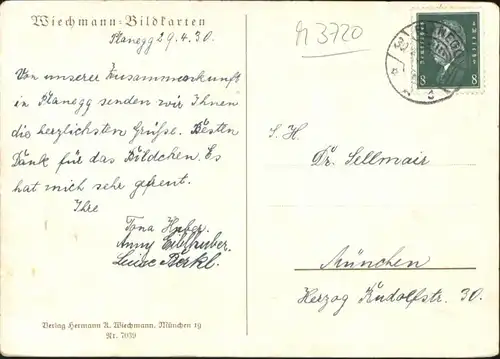 Wiechmann=Bildkarten
Planegg 29.4.30.
Von unserer Zusammenkunft
in Planegg senden wir Ihnen
die herzlichsten Grüße. Besten
Dank für das Bildchen. Es
hat mich sehr gefreut.
Ihre
Huber.
Anny Eiblhuber.
Luise
Verlag Hermann A. Wiechmann, München 19
Nr. 7039
3720
8 8
S. H.
Dr. Sellmair
München
Herzog Rudolfstr. 30.